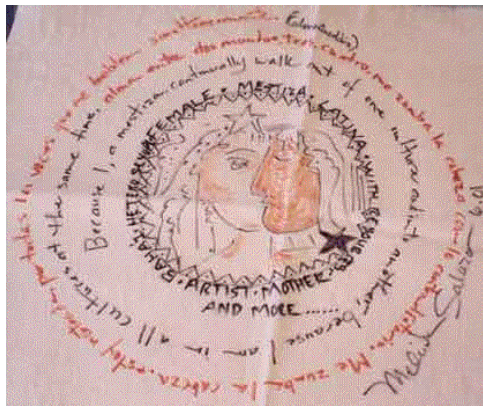 BAHAI HETEROSEXUAL FEMALE · MESTIZA · LATINA · WITH
· ARTIST · MOTHER ·
AND MORE......
Because I, a mestiza, continually walk out of one culture and into another, because I am in all cultures at the same time, alma entre dos mundos tres, cuatro, me zumba la cabeza con lo contradictorio. Me zumba la cabeza. estoy norteada por todas las voces que me hablan simultáneamente.